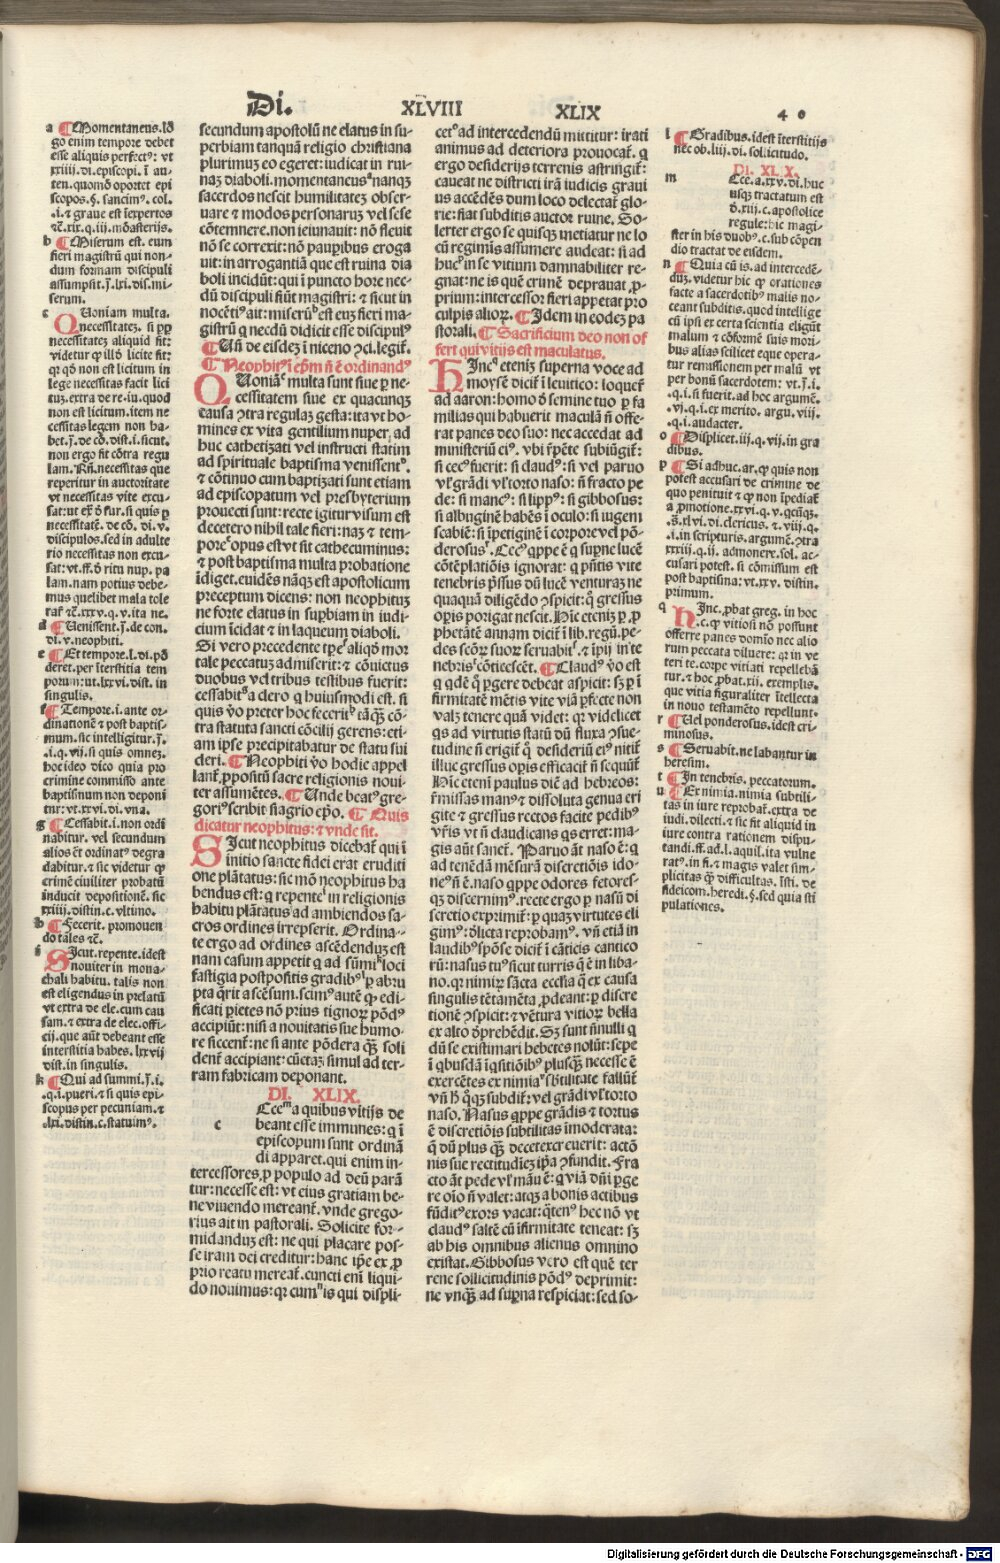 Di. XLVIII XLIX 40
a ¶Momentaneus. lõ
go enim tempore debet
esse aliquis perfectꝰ: vt
xxiiii. di. episcopi. ĩ au-
ten. quomõ oportet epi
scopos. §. sancimꝰ. col.
.i. ⁊ graue est iexpertos
⁊c̃. xix. q. iii. mõasterijs.
b ¶Miserum est. eum
fieri magistrũ qui non-
dum formam discipuli
assumpsit. ſ̃. lxi. dis. mi-
serum.
c Quoniam multa.
necessitatez. si pp̱
necessitatez aliquid fit:
videtur ꝙ illđ licite fit:
qꝛ qđ non est licitum in
lege necessitas facit lici
tuz. extra de re. iu. quod
non est licitum. item ne
cessitas legem non ha-
bet. ſ̃. de cõ. dist. i. sicut.
non ergo fit cõtra regu
lam. Rñ. necessitas que
reperitur in auctoritate
vt necessitas vite excu-
sat: ut eff. đ fur. si quis ꝑ
necessitatẽ. de cõ. di. v.
discipulos. sed in adulte
rio necessitas non excu-
sat: vt. ff. đ ritu nup. pa
lam. nam potius debe-
mus quelibet mala tole
rar̃ ⁊c̃. xxx. q. v. ita ne.
d ¶Uenissent. ſ̃. de con.
di. v. neophiti.
e ¶Et tempore. l. di. põ
deret. per iterstitia tem
porum: ut. lxxvi. dist. in
singulis.
f ¶Tempore. i. ante or-
dinationẽ ⁊ post baptis-
mum. sic intelligitur. ſ̃.
.i. q. vij. si quis omnez.
hoc ideo dico quia pro
crimine commisso ante
baptismum non deponi
tur: vt. xxvi. di. vna.
g ¶Cessabit. i. non ordi
nabitur. vel secundum
alios ẽt ordinatꝰ degra
dabitur. ⁊ sic videtur ꝙ
crimẽ ciuiliter probatũ
inducit depositionẽ. sic
xxiiij. distin. c. vltimo.
h ¶Fecerit. promouen
do tales ⁊c̃.
i Sicut. repente. idest
nouiter in mona-
chali habitu. talis non
est eligendus in prelatũ
vt extra de ele. cum cau
sam. ⁊ extra de elec. offi-
cij. que aũt debeant esse
interstitia habes. lxxvij
dist. in singulis.
k ¶Qui ad summi. ſ̃. i.
.q. i. pueri. ⁊ si quis epi-
scopus per pecuniam. ⁊
.lxi. distin. c. statuimꝰ.
secundum apostolũ ne elatus in su-
perbiam tanquã religio christiana
plurimuz eo egeret: iudicat in rui-
naz diaboli. momentaneusᵃ nanqz
sacerdos nescit humilitatez obser-
uare ⁊ modos personaruz vel sese
cõtemnere. non ieiunauit: nõ fleuit
nõ se correxit: nõ paupibus eroga
uit: in arrogantiã que est ruina dia
boli incidũt: qui ĩ puncto hore nec-
dũ discipuli fiũt magistri: ⁊ sicut in
nocẽtiꝰ ait: miserũᵇ est euz fieri ma-
gistrũ q̇ necdũ didicit esse discipulꝰ
¶Uñ de eisdez ĩ niceno ꝯci. legit̃.
¶Neophitꝰ ĩ ep̃m ñ ẽ ordinandꝰ
Quoniãᶜ multa siue per ne-
cessitatem siue ex quacunqz
causa ꝯtra regulaz gesta: ita vt ho-
mines ex vita gentilium nuper ad
huc cathetizati vel instructi statim
ad spirituale baptisma venissentᵈ.
⁊ cõtinuo cum baptizati sunt etiam
ad episcopatum vel presbyterium
prouecti sunt: recte igitur visum est
decetero nihil tale fieri: naz ⁊ tem-
poreᵉ opus est vt sit cathecuminus:
⁊ post baptisma multa probatione
ĩdiget. euidẽs nãqz est apostolicum
preceptum dicens: non neophituz
ne forte elatus in supbiam in iudi-
cium ĩcidat ⁊ in laqueum diaboli.
Si vero precedente tpeᶠ aliqđ mor
tale peccatuz admiserit: ⁊ cõuictus
duobus vel tribus testibus fuerit:
cessabitᵍ a clero q̇ huiusmodi est. si
quis v̾o preter hoc feceritʰ tãqz cõ-
tra statuta sancti cõcilij gerens: eti-
am ipse precipitabatur de statu sui
cleri. ¶Neophiti v̾o hodie appel
lant̃. ppositũ sacre religionis noui-
ter assumẽtes. ¶Unde beatꝰ gre-
goriꝰ scribit siagrio ep̃o. ¶Quis
dicatur neophitus: ⁊ vnde sit.
Sicut neophitus dicebat̃ qui ĩ
initio sancte fidei erat eruditi
one plãtatus: sic mõ neophitus ha
bendus est: q̇ repenteⁱ in religionis
habitu plãtatus ad ambiendos sa-
cros ordines irrepserit. Ordina-
te ergo ad ordines ascẽdenduz est
nam casum appetit q̇ ad sũmiᵏ loci
fastigia postpositis gradibꝰˡ ꝑ abru
pta q̃rit ascẽsum. scimꝰ autẽ ꝙ edi-
ficati parietes nõ prius tignoꝝ põdꝰ
accipiũt: nisi a nouitatis sue humo-
re siccent̃: ne si ante põdera qz̃ soli
dent̃ accipiant: cũctaz simul ad ter-
ram fabricam deponant.
DI. XLIX.
c Ecceᵐ a quibus vitijs de
beant esse immunes: q̇ ĩ
episcopum sunt ordinã
di apparet. qui enim in-
tercessores. ꝓ populo ad deũ parã
tur: necesse est: vt eius gratiam be-
ne viuendo mereant̃. vnde grego-
rius ait in pastorali. Solicite for-
midanduz est: ne qui placare pos-
se iram dei creditur: hanc ip̃e ex ꝓ
prio reatu mereat̃. cuncti eni liqui-
do nouimus: qꝛ cumⁿ is qui displi-
cetᵒ ad intercedendũ mittitur: irati
animus ad deteriora prouocat̃. q̇
ergo desiderijs terrenis astringit̃:
caueat ne districti irã iudicis graui
us accẽdẽs dum loco delectat̃ glo-
rie: fiat subditis auctor ruine. So-
lerter ergo se quisqz metiatur ne lo
cũ regiminis assumere audeat: si ad
hucᵖ in se vitium damnabiliter re-
gnat: ne is quẽ crimẽ deprauat ꝓ-
prium: intercessor fieri appetat pro
culpis alioꝝ. ¶Idem in eodez pa
storali. ¶Sacrificium deo non of
fert qui vitijs est maculatus.
Hinc q etenim superna voce ad
moysẽ dicit̃ ĩ leuitico: loquer̃
ad aaron: homo đ semine tuo ꝑ fa
milias qui habuerit maculã ñ offe-
rat panes deo suo: nec accedat ad
ministeriũ eiꝰ. vbi r̃pẽte subiũgit̃:
si cecꝰ fuerit: si claudꝰ: si vel paruo
vl̃ grãdi vl̃ torto naso: ñ fracto pe
de: si mancꝰ: si lippꝰ: si gibbosus:
si albuginẽ habẽs ĩ oculo: si iugem
scabiẽ: si ĩpetiginẽ ĩ corpore vel põ-
derosusʳ. Cecꝰ qp̃pe ẽ q̇ sup̃ne lucẽ
cõtẽplatiõis ignorat: q̇ p̃ntis vite
tenebris p̃ssus dũ lucẽ venturaz ne
quaquã diligẽdo ꝯspicit: q̃ gressus
op̃is porigat nescit. Hic etenim ꝑ ꝓ
phetãtẽ annam dicit̃ ĩ lib. regũ. pe-
des scõꝝ suoꝝ seruabitˢ. ⁊ ĩpij in te
nebrisᵗ cõticescẽt. ¶Claudꝰ v̾o est
q̇ q̇dẽ q̃ ꝑgere debeat aspicit: sz̃ ꝑ ĩ
firmitatẽ mẽtis vite viã ꝑfecte non
valz tenere quã videt: qꝛ videlicet
q̇s ad virtutis statũ dũ fluxa ꝯsue-
tudine ñ erigit̃ q̃ desideriũ nitit̃
illuc gressus op̃is efficacit̃ ñ sequũt̃
Hic eteni paulus diẽ ad hebreos:
r̃missas manꝰ ⁊ dissoluta genua eri
gite ⁊ gressus rectos facite pedibꝰ
vr̃is vt ñ claudicans q̇s erret: ma-
gis aũt sanet̃. Paruo aũt naso ẽ: q̇
ad tenẽdã mẽsurã discretiõis ido-
neꝰ ñ ẽ. naso qp̃pe odores fetores-
qz discernimꝰ. recte ergo ꝑ nasũ di
scretio exprimit̃: ꝑ quaz virtutes eli
gimꝰ: đlicta reprobamꝰ. vñ etiã in
laudibꝰ spõse dicit̃ ĩ cãticis cantico
rũ: nasus tuꝰ sicut turris q̃ ẽ in liba-
no. qꝛ nimiꝝ sãcta ecclia q̃ ex causa
singulis tẽtamẽta, ꝓdeant: ꝑ discre
tionẽ ꝯspicit: ⁊ vẽtura vitioꝝ bella
ex alto đprehẽdit. Sz sunt ñnulli q̇
dũ se existimari hebetes nolũt: sepe
ĩ q̇busdã ĩq̇sitiõibꝰ plusqz̃ necesse ẽ
exercẽtes ex nimiaᵘ sbtilitate fallũt̃
vñ h̃ q̃qz subdit̃: vel grãdi vl̃ torto
naso. Nasus qp̃pe grãdis ⁊ tortus
ẽ discretiõis subtilitas imoderata:
q̃ dũ plus qz̃ decet excreuerit: actõ
nis sue rectitudiez ip̃a ꝯfundit. Fra
cto ãt pede vl̃ mãu ẽ: q̇ viã dñi ꝑge
re oĩo ñ valet: atqz a bonis actibus
fũditꝰ exors vacat: q̃tenꝰ hec nõ vt
claudꝰ saltẽ cũ ĩfirmitate teneat: sz̃
ab his omnibus alienus omnino
existat. Gibbosus vero est quẽ ter
rene sollicitudinis põdꝰ deprimit:
ne vnqz̃ ad sup̃na respiciat: sed so-
l ¶Gradibus. idest ĩterstitijs
nec ob. liij. di. sollicitudo.
DI. XLIX.
m Ecce. a. xxv. di. huc
usqz tractatum est
đ. xiij. c. apostolice
regule: hic magi-
ster in his duobꝰ. c. sub cõpen
dio tractat de eisdem.
n ¶Quia cũ is. ad intercedẽ-
duz. videtur hic ꝙ orationes
facte a sacerdotibꝰ malis no-
ceant subditis. quod intellige
cũ ipsi ex certa scientia eligũt
malum ⁊ cõformẽ suis mori-
bus alias scilicet eque opera-
tur remissionem per malũ vt
per bonũ sacerdotem: vt. ſ̃. i.
.q. i. si fuerit. ad hoc argumẽ.
.vj. q. i. ex merito. argu. viij.
.q. i. audacter.
o ¶Displicet. iij. q. vij. in gra
dibus.
p ¶Si adhuc. ar. ꝙ quis non
potest accusari de crimine de
quo penituit ⁊ ꝙ non ĩpediat̃
a ꝓmotione. xxvi. q. v. qcũqz.
.s̃. xlvi. di. clericus. ⁊. viij. q.
.i. in scripturis. argumẽ. ꝯtra
xxxiij. q. ij. admonere. sol. ac-
cusari potest. si cõmissum est
post baptisma: vt. xxv. distin.
primum.
q Hinc, ꝓbat greg. in hoc
.c. ꝙ vitiosi nõ possunt
offerre panes domĩo nec alio
rum peccata diluere: qꝛ in ve
teri te. corpe vitiati repellebã
tur. ⁊ hoc ꝓbat. xij. exemplis.
que vitia figuraliter ĩtellecta
in nouo testamẽto repellunt.
r ¶Uel ponderosus. idest cri-
minosus.
s ¶Seruabit. ne labantur in
heresim.
t ¶In tenebris. peccatorum.
u ¶Et nimia. nimia subtili-
tas in iure reprobat̃. extra de
iudi. dilecti. ⁊ sic fit aliquid in
iure contra rationem dispu-
tandi. ff. ad. l. aquil. ita vulne
ratꝰ. in fi. ⁊ magis valet sim-
plicitas qz̃ difficultas. Isti. de
fideicom. heredi. §. sed quia sti
pulationes.
Digitalisierung gefördert durch die Deutsche Forschungsgemeinschaft - DFG